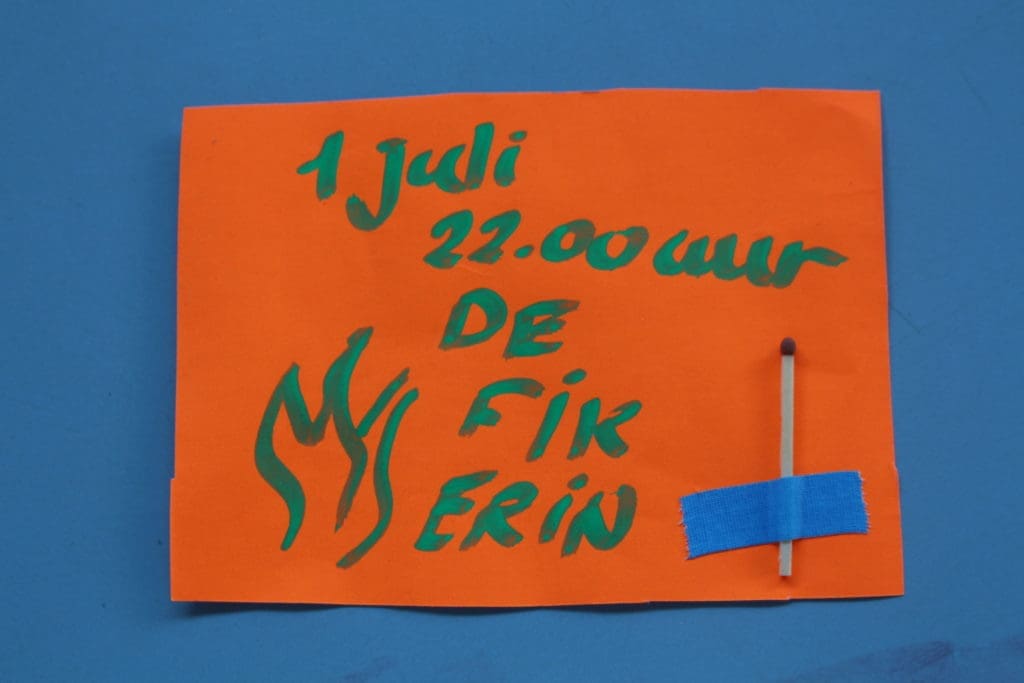 1 juli
22.00 uur
DE
FiK
ERiN